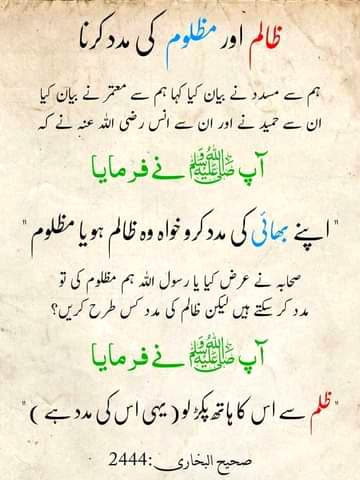 ظالم اور مظلوم کی مدد کرنا
ہم سے مسدد نے بیان کیا کہا ہم سے معتمر نے بیان کیا
ان سے حمید نے اور ان سے انس رضی اللہ عنہ نے کہ
آپ ﷺ نے فرمایا
"اپنے بھائی کی مدد کرو خواہ وہ ظالم ہو یا مظلوم"
صحابہ نے عرض کیا یا رسول اللہ ہم مظلوم کی تو
مدد کر سکتے ہیں لیکن ظالم کی مدد کس طرح کریں؟
آپ ﷺ نے فرمایا
"ظلم سے اس کا ہاتھ پکڑ لو (یہی اس کی مدد ہے)"
صحیح البخاری:2444